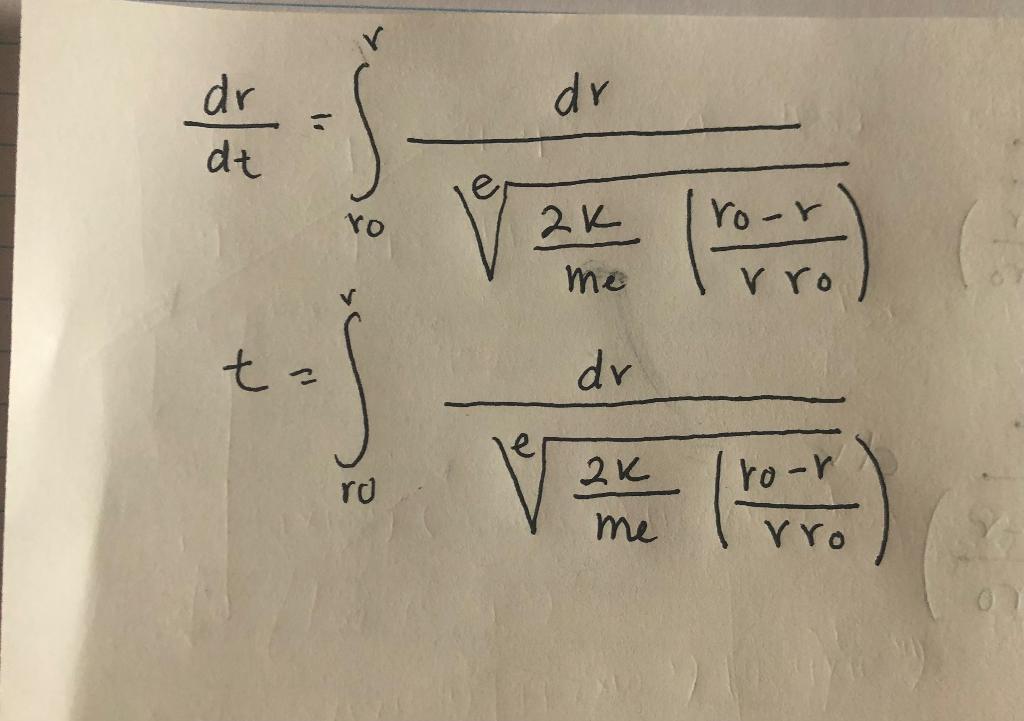 dr/dt = ∫_{ro}^{r} dr / ᵉ√(2k/me (ro-r / r ro))
t = ∫_{ro}^{r} dr / ᵉ√(2k/me (ro-r / r ro))